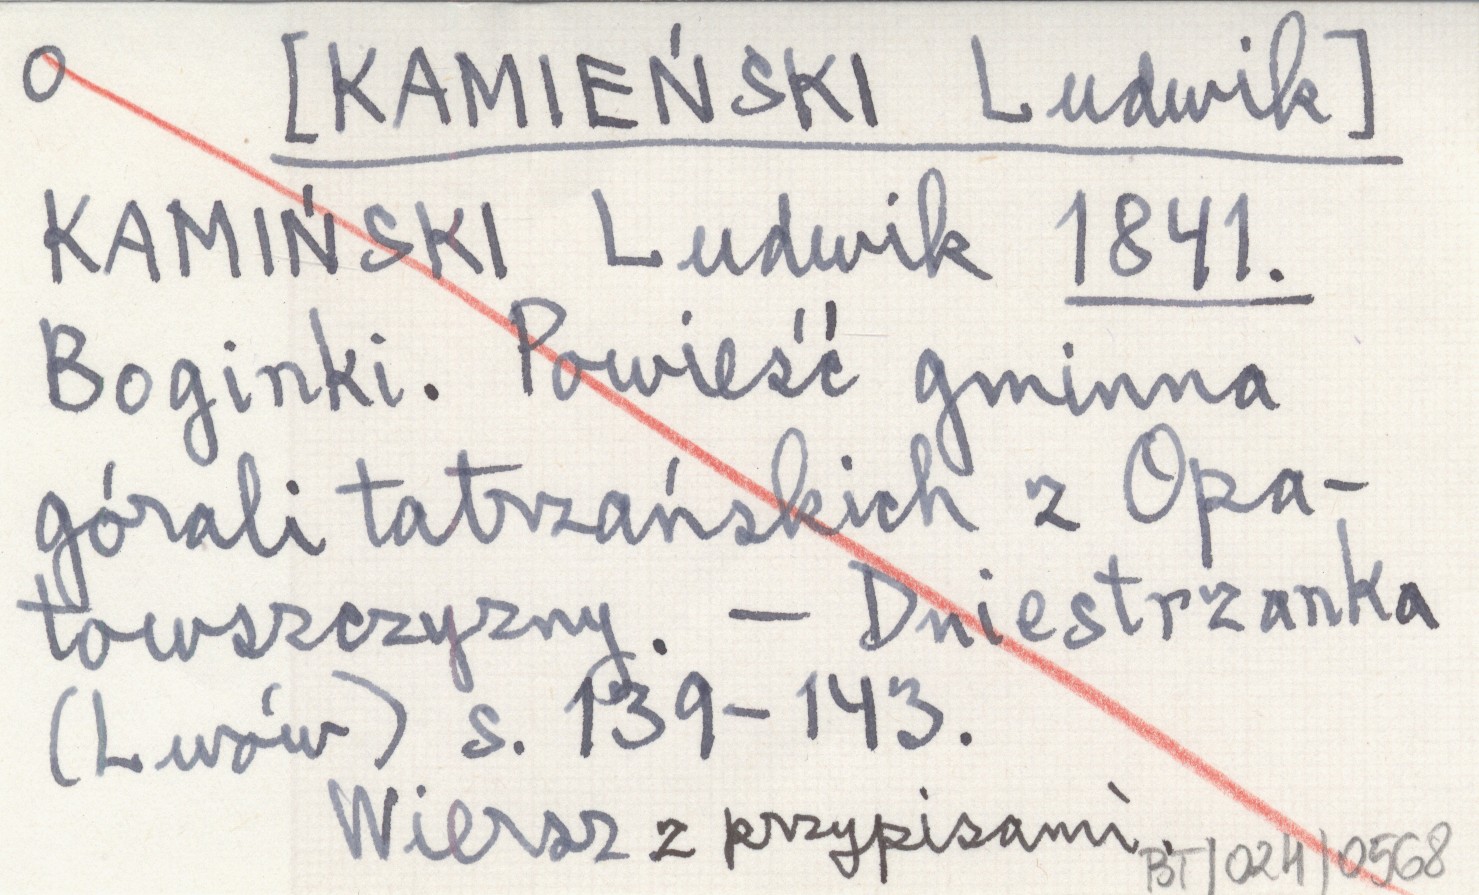 O [KAMIEŃSKI Ludwik]
KAMIŃSKI Ludwik 1841.
Boginki. Powieść gminna
górali tatrzańskich z Opa-
towszczyzny. — Dniestrzanka
(Lwów) s. 139-143.
Wiersz z przypisami.
BT/024/0568